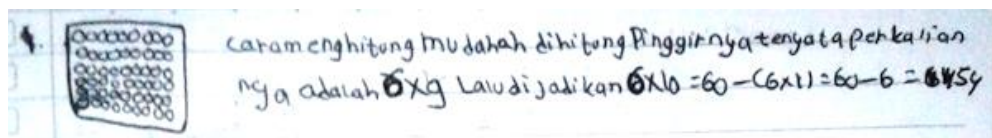 4. caramenghitung mudahah dihitung Pinggirnya tenyata perkalian
nya adalah 6x9 Lalu di jadikan 6x10 = 60 - (6x1) = 60 - 6 = 54